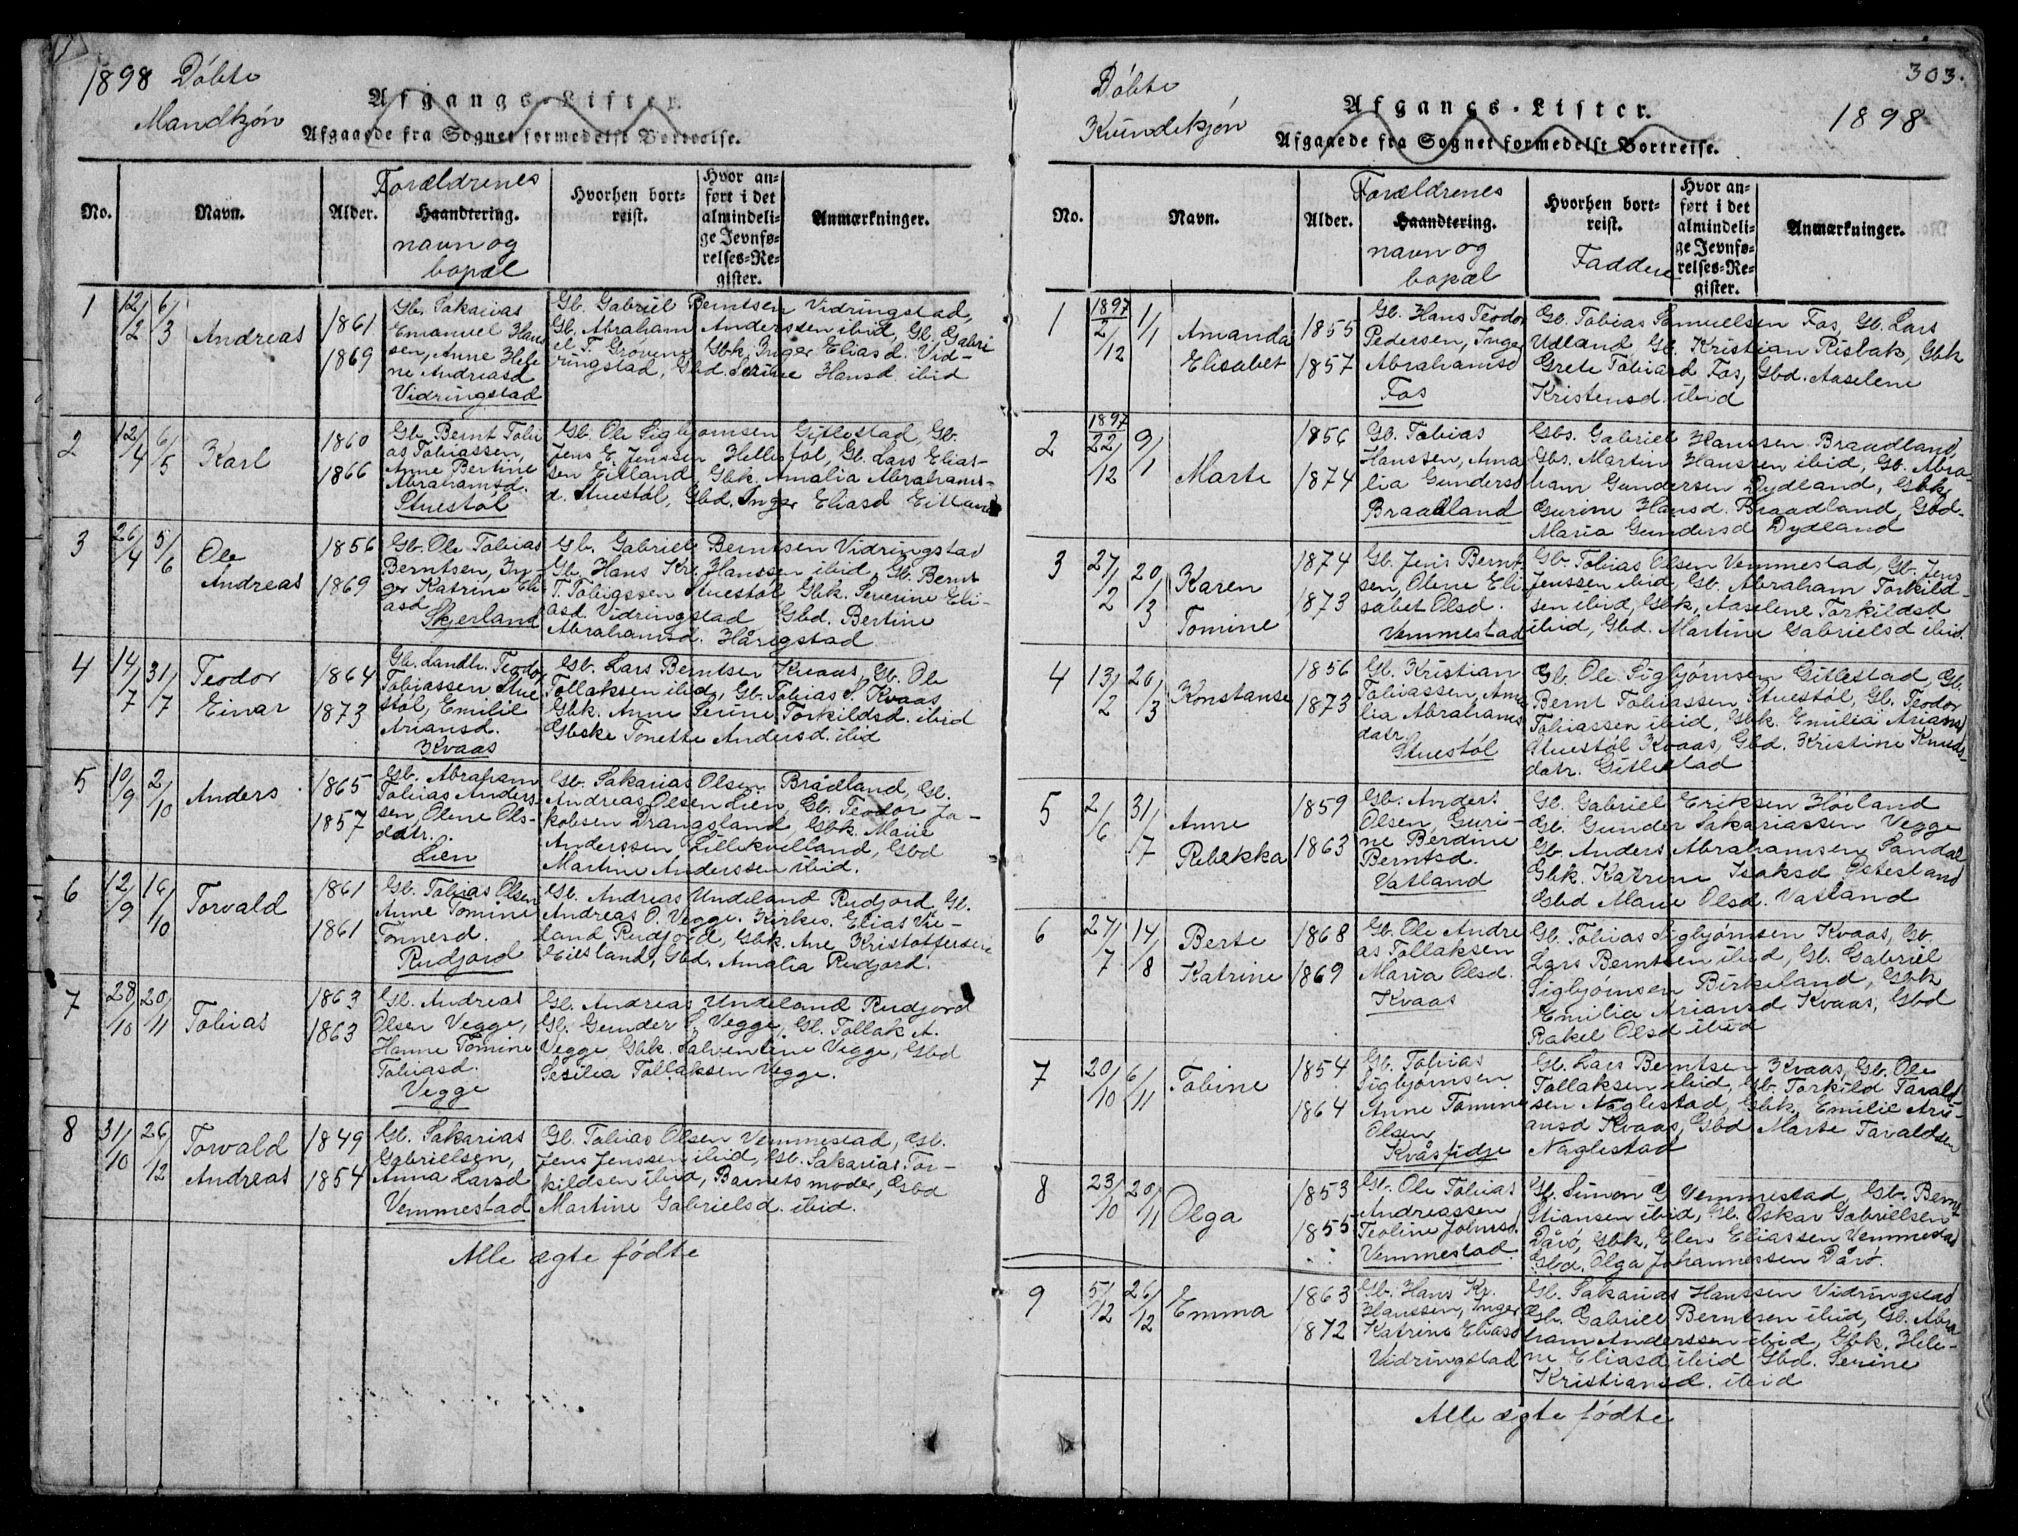 1898 Døbte
Mandkjøn
Afgangs-Lister.
Afgaaede fra Sognet formedelst Bortreise.
No.
Navn.
Alder.
Forældrenes
Haandtering.
navn og
bopæl
Hvorhen bort-
reist.
Hvor an-
ført i det
almindeli-
ge Jevnfø-
relses-Re-
gister.
Anmærkninger.
1
12/2 6/3
Andreas
1861
1869
Gb. Sakarias
Emanuel Han
sen, Anne Hele
ne Andreasd
Vidringstad
Gb. Gabriel Berntsen Vidringstad,
Gb. Abraham Anderssen ibid, Gb. Gabri
el T. Grøvene, Gbk. Inger Eliasd. Vid-
ringstad, Gbd. Serine Hansd ibid
2
12/4 6/5
Karl
1860
1866
Gb. Bernt Tobi
as Tobiassen,
Anne Bertine
Abrahamsd.
Stuestøl
Gb. Ole Sigbjørnsen Gitlestad, Gb.
Jens E. Jenssen Hellesføl, Gb. Lars Elias-
sen Eitland, Gbk. Amalia Abrahams-
d. Stuestøl, Gbd. Inger Eliasd Eitland
3
26/4 5/6
Ole
Andreas
1856
1869
Gb. Ole Tobias
Berntsen, In-
ger Katrine Eli
asd.
Skjerland
Gb. Gabriel Berntsen Vidringstad
Gb. Hans Kr. Hanssen ibid, Gb. Bernt
T. Tobiassen Stuestøl Gbk. Severine Eli-
asd. Vidringstad Gbd. Bertine
Abrahamsd. Hårigstad
4
14/7 31/7
Teodor
Einar
1864
1873
Gb. Landh. Teodor
Tobiassen Stue
støl, Emilie
Ariansd.
Kvaas
Gb. Lars Berntsen Kvaas, Gb. Ole
Tollaksen ibid, Gb. Tobias S. Kvaas
Gbk. Anne Serine Torkildsd. ibid
Gbske Tonette Andersd. ibid
5
10/9 2/10
Anders
1865
1857
Gb. Abraham
Tobias Anders-
sen, Olene Ols-
datr.
Lien
Gb. Sakarias Olsen Brådland, Gb.
Andreas Olsen Lien, Gb. Teodor Ja-
kobsen Drangsland, Gbk. Marie
Anderssen Lillekvelland, Gbd
Martine Anderssen ibid.
6
12/9 16/10
Torvald
1861
1861
Gb. Tobias Olsen
Anne Tomine
Tønnesd.
Rudjord
Gb. Andreas Undeland Rudjord Gb.
Andreas O. Vegge. Kirkes. Elias Vie-
land Rudjord, Gbk. Ane Kristoffersen
Eiesland, Gbd. Amalia Rudjord.
7
28/10 20/11
Tobias
1863
1863
Gb. Andreas
Olsen Vegge,
Hanne Tomine
Tobiasd.
Vegge
Gb. Andreas Undeland Rudjord
Gb. Gunder S. Vegge, Gb. Tollak A.
Vegge, Gbk. Salventine Vegge, Gbd
Sesilia Tollaksen Vegge.
8
31/10 26/12
Torvald
Andreas
1849
1854
Gb. Sakarias
Gabrielsen,
Anna Larsd
Vemmestad
Gb. Tobias Olsen Vemmestad, Gb.
Jens Jenssen ibid, Gb. Sakarias Tor-
kildsen ibid, Barnets moder, Gbd
Martine Gabrielsd. ibid.
Alle ægte fødte
303.
Døbte
Kvindekjøn
Afgangs-Lister.
1898
Afgaaede fra Sognet formedelst Bortreise.
No.
Navn.
Alder.
Forældrenes
Haandtering.
navn og
bopæl
Hvorhen bort-
reist.
Faddere
Hvor an-
ført i det
almindeli-
ge Jevnfø-
relses-Re-
gister.
Anmærkninger.
1
1897
2/12 1/1
Amanda
Elisabet
1855
1857
Gb. Hans Teodor
Pedersen, Inger
Abrahamsd
Fos
Gb. Tobias Samuelsen Fos, Gb. Lars
Udland Gb. Kristian Risbak, Gbk
Grete Tobiasd Fos, Gbd. Aaselene
Kristensd. ibid
2
1897
22/12 9/1
Marte
1856
1874
Gb. Tobias
Hanssen, Ama
lia Gundersd
Braadland
Gbs. Gabriel Hanssen Braadland,
Gbs. Martin Hanssen ibid, Gb. Abra-
ham Gundersen Dydland, Gbk
Gurine Hansd. Braadland, Gbd.
Maria Gundersd Dydland
3
27/2 20/3
Karen
Tomine
1874
1873
Gb. Jens Bernt-
sen, Olene Eli
sabet Olsd.
Vemmestad
Gb. Tobias Olsen Vemmestad, Gb. Jens
Jenssen ibid, Gb. Abraham Torkild-
sen ibid, Gbk. Aaselene Torkildsd
ibid, Gbd. Martine Gabrielsd ibid.
4
13/2 20/3
Konstanse
1856
1873
Gb. Kristian
Tobiassen, Ama
lia Abrahams
datr.
Stuestøl
Gb. Ole Sigbjørnsen Gitlestad, Gb.
Bernt Tobiassen Stuestøl, Gb. Teodor
Tobiassen ibid, Gbk. Emilia Ariansd
Stuestøl Kvaas, Gbd. Kristine Knuds-
datr. Gitlestad
5
2/6 31/7
Anne
Rebekka
1859
1863
Gb. Anders
Olsen, Guri-
ne Berdine
Berntsd.
Vatland
Gb. Gabriel Eriksen Høiland
Gb. Gunder Sakariassen Vegge
Gb. Anders Abrahamsen Sandal
Gbk. Katrine Isaksd Østesland
Gbd Marie Olsd. Vatland
6
27/7 14/8
Berte
Katrine
1868
1869
Gb. Ole Andre
as Tollaksen
Maria Olsd.
Kvaas
Gb. Tobias Sigbjørnsen Kvaas, Gb.
Lars Berntsen ibid, Gb. Gabriel
Sigbjørnsen Birkeland, Gbk
Emilia Ariansd Kvaas, Gbd
Rakel Olsd ibid
7
20/10 6/11
Tobine
1854
1864
Gb. Tobias
Sigbjørnsen
Anne Tomine
Olsen
Kvåsfidje
Gb. Lars Berntsen Kvaas, Gb. Ole
Tollaksen ibid, Gb. Torkild Tarald-
sen Naglestad, Gbk. Emilie Ari-
ansd Kvaas, Gbd Marte Taraldsen
Naglestad
8
23/10 20/11
Olga
1853
1855
Gb. Ole Tobias
Andreassen
Teoline Johnsd.
Vemmestad.
Gb. Simon G Vemmestad, Gb. Bernt
Stiansen ibid, Gb. Oskar Gabrielsen
Dårø, Gbk. Elen Eliassen Vemmestad
Gbd. Olga Johannessen Dårø.
9
5/12 26/12
Emma
1863
1872
Gb. Hans Kr.
Hanssen, Inger
Katrine Eliasd
Vidringstad
Gb. Sakarias Hanssen Vidringstad
Gb. Gabriel Berntsen ibid, Gb. Abra
ham Anderssen ibid, Gbk. Hele-
ne Eliasd ibid Gbd. Serine
Kristiansd. ibid
Alle ægte fødte